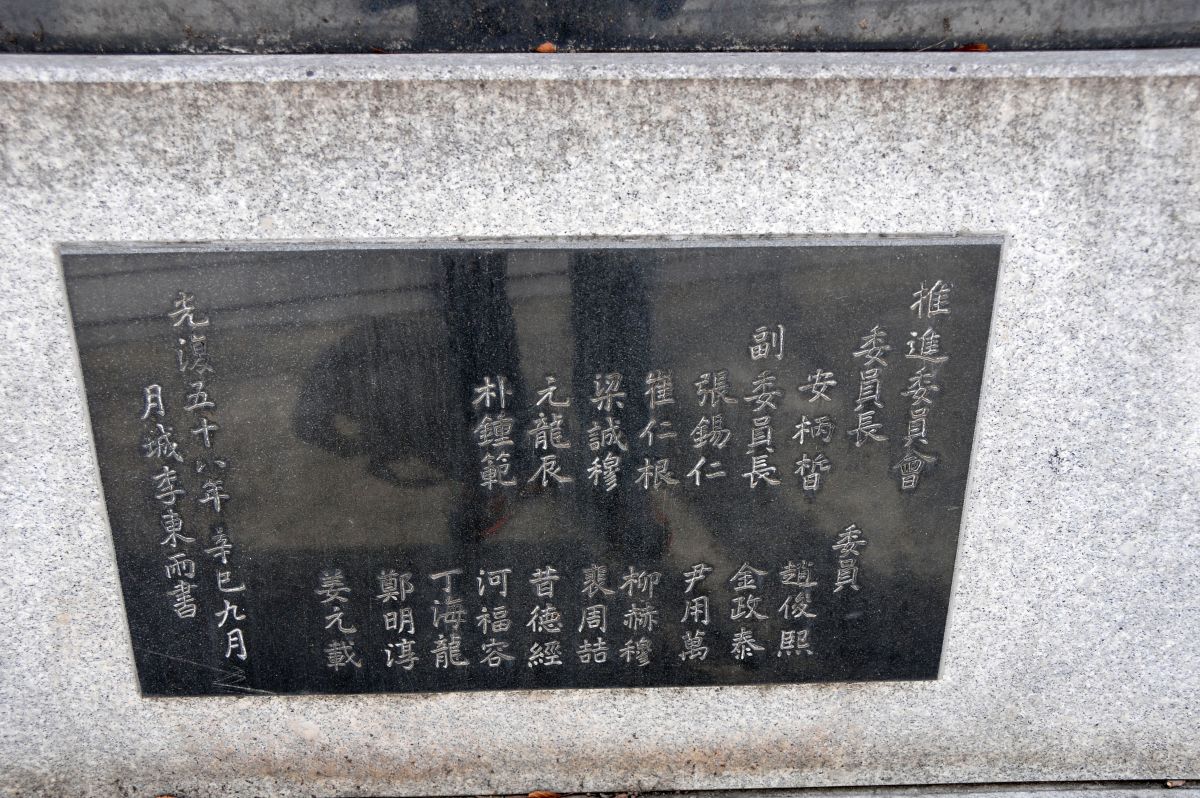 推進委員會
委員長
安柄晳
副委員長
張錫仁
崔仁根
梁誠穆
元龍辰
朴鍾範
委員
趙俊熙
金政泰
尹用萬
柳赫穆
裵周喆
昔德經
河福容
丁海龍
鄭明淳
姜元載
光復五十八年辛巳九月
月城李東雨書